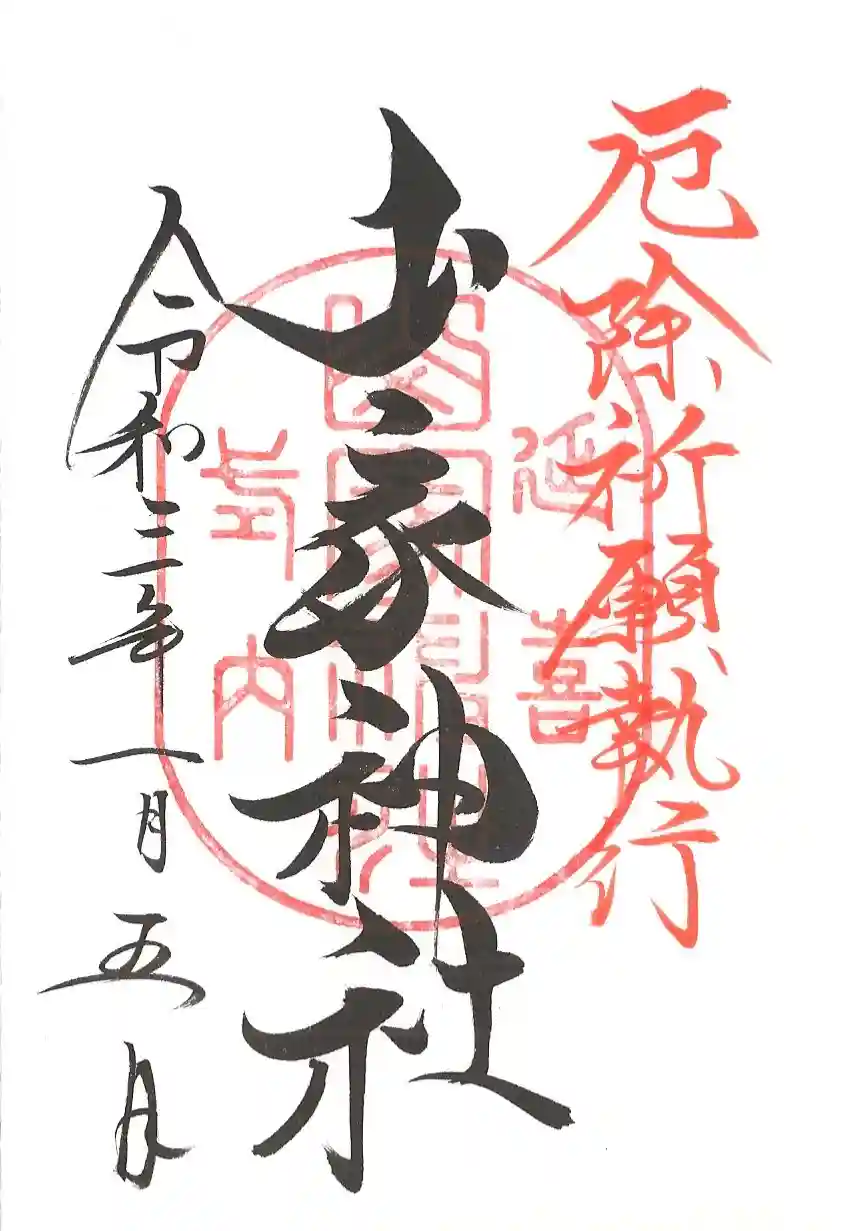 厄除祈願執行
山家神社
令和三年一月五日
延喜
式内